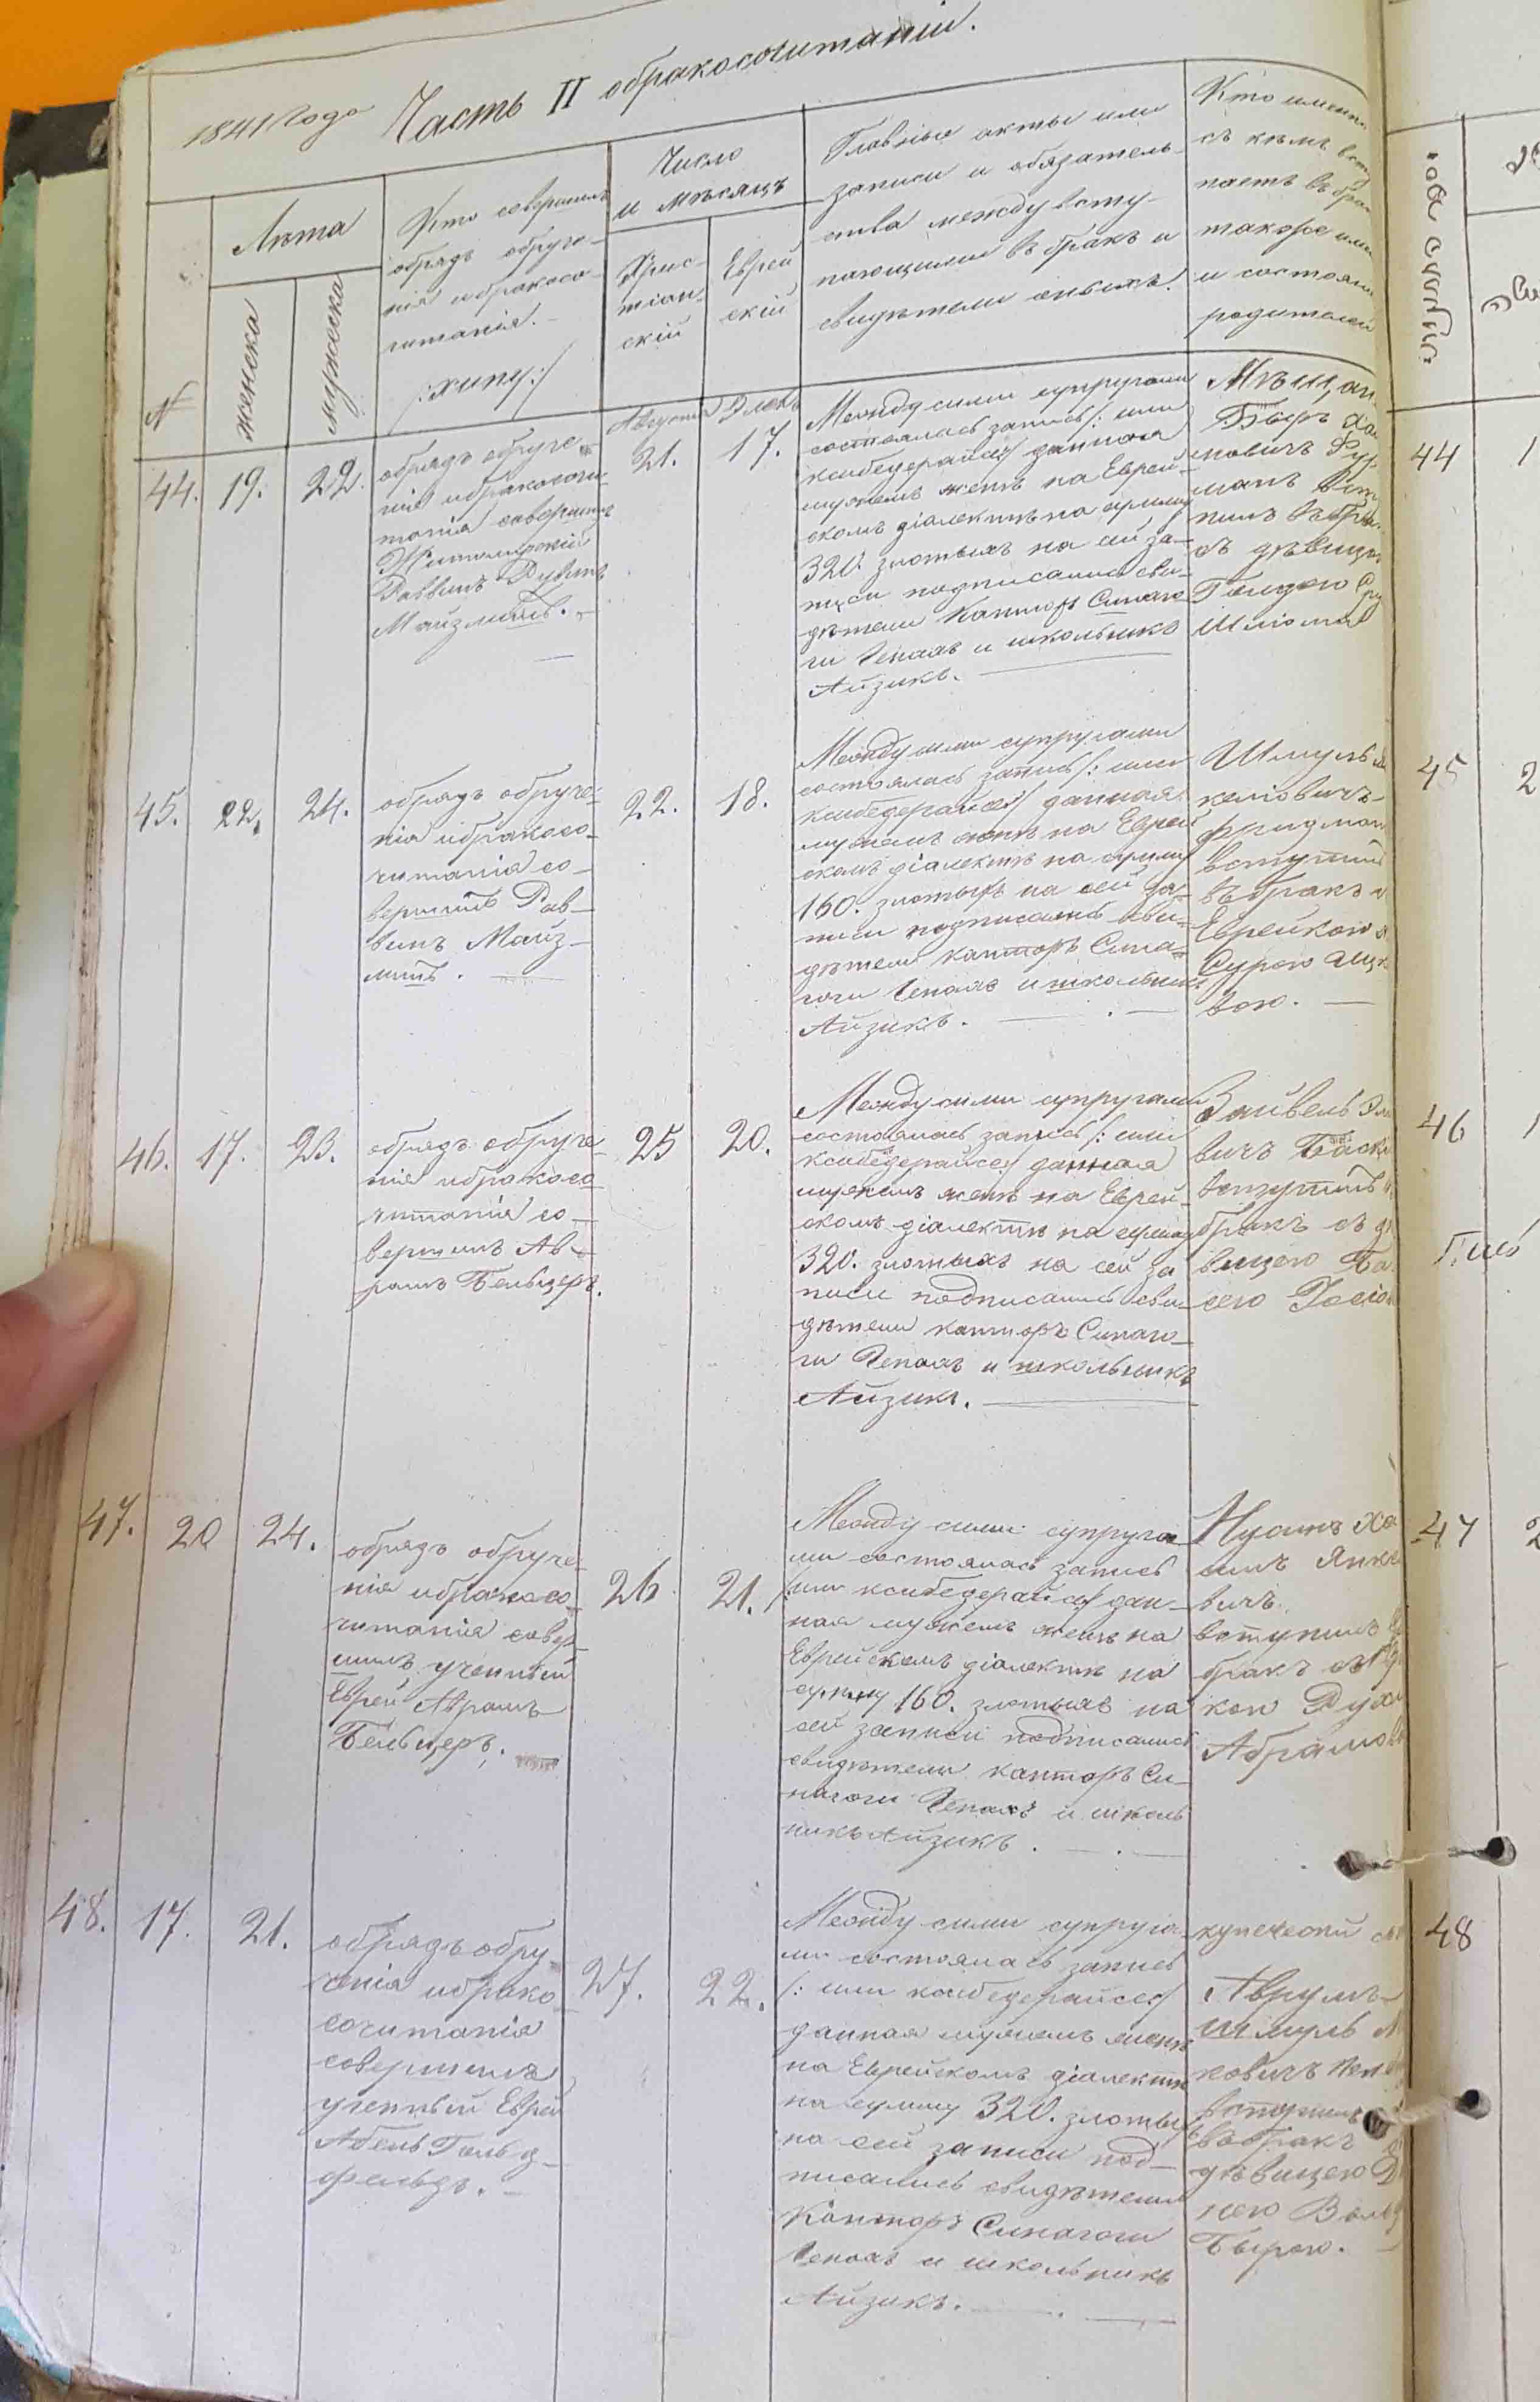 1841 года Часть II обракосочитаніи.
№
Лѣта
женска
мужеска
Кто совершилъ
обрядъ обруче-
нія и бракосо-
читанія.
/:хипу:/
Число
и мѣсяцъ
Хрис-
тіан-
скій
Еврей
скій
Главные акты или
записи и обязатель-
ства между всту-
пающими въ бракъ и
свидѣтели оныхъ.
Кто именно
съ кѣмъ
паетъ въ
также
и состоян
родителей
Августъ
44.
19.
22.
обрядъ обруче-
нія и бракосочи-
танія совершилъ
Житомирскій
Раввинъ
Майзлишъ.
21.
17.
Между сими супругами
состоялась запись /: или
ксибедерайсе:/ данная
мужемъ женѣ на Еврей-
скомъ діалектѣ на сумму
320. злотыхъ на сей за-
писи подписались сви-
дѣтели Канторъ Синаго-
ги Генахъ и школьникъ
Айзикъ.
Мѣщан
Беръ
новичъ
манъ
пилъ въ
съ дѣвицею
Шліома
44
45.
22.
24.
обрядъ обруче-
нія и бракосо-
читанія со-
вершилъ Рав-
винъ Майз-
лишъ.
22.
18.
Между сими супругами
состоялась запись /: или
ксибедерайсе:/ данная
мужемъ женѣ на Еврей
скомъ діалектѣ на сумму
160. злотыхъ на сей за-
писи подписались сви-
дѣтели канторъ Сина-
гоги Генахъ и школьникъ
Айзикъ.
Шмуль
келіовичъ
Фридман
вступилъ
въ бракъ
Еврейкою
Сурою Ицк
вою.
45
2
46.
17.
23.
обрядъ обруче
нія и бракосо
читанія со-
вершилъ Ав-
рамъ Бельцеръ.
25
20.
Между сими супругами
состоялась запись /: или
ксибедерайсе:/ данная
мужемъ женѣ на Еврей-
скомъ діалектѣ на сумму
320. злотыхъ на сей за
писи подписались сви-
дѣтели канторъ Синаго-
ги Генахъ и школьникъ
Айзикъ.
Зайвель
вичъ
вступилъ
бракъ съ дѣ
вицею Ба
сею Іосіо
46
1
47.
20
24.
обрядъ обруче-
нія и бракосо-
читанія совер-
шилъ ученный
Еврей Аврамъ
Бельцеръ.
26.
21.
Между сими супруга-
ми состоялась запись
/: или ксибедерайсе:/ дан-
ная мужемъ женѣ на
Еврейскомъ діалектѣ на
сумму 160. злотыхъ на
сей записи подписались
свидѣтели канторъ Си-
нагоги Генахъ и школь
никъ Айзикъ.
Нусинъ Ха
имъ Янке
вичъ
вступилъ
бракъ съ
кою Рух
Абрамов
47
2
48.
17.
21.
обрядъ обру
ченія и брако
сочитанія
совершилъ
ученный Еврей
Абель Гольд-
фельдъ.
27.
22.
Между сими супруга-
ми состоялась запись
/: или ксибедерайсе:/
данная мужемъ женѣ
на Еврейскомъ діалектѣ
на сумму 320. злотых
на сей записи под-
писались свидѣтели
Канторъ Синагоги
Генахъ и школьникъ
Айзикъ.
купеческій
Аврумъ-
Шмуль
ковичъ
вступилъ
въ бракъ
дѣвицею
нею Воль
Бырею.
48